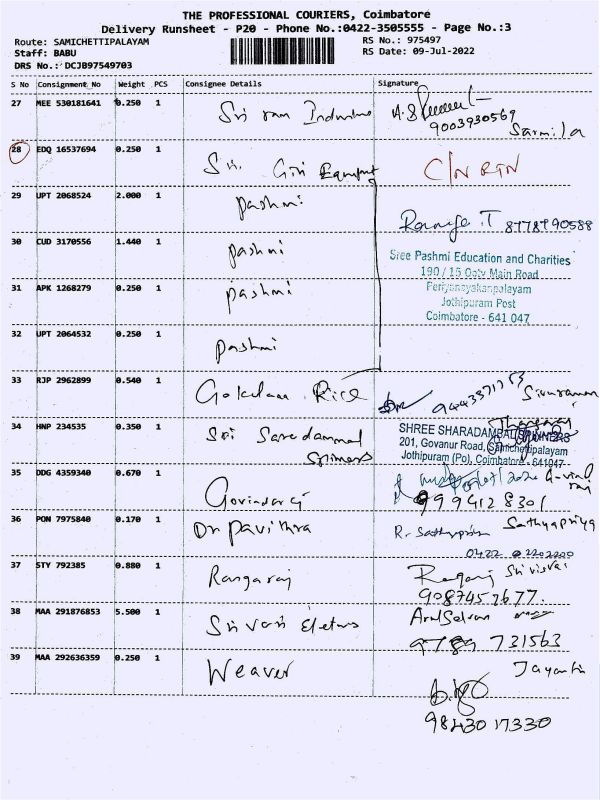 THE PROFESSIONAL COURIERS, Coimbatore
Delivery Runsheet - P20 - Phone No.:0422-3505555 - Page No.:3
Route: SAMICHETTIPALAYAM RS No.: 975497
Staff: BABU RS Date: 09-Jul-2022
DRS No.: DCJB97549703
S No Consignment_No Weight PCS Consignee Details Signature
27 MEE 530181641 0.250 1 Sri ram
9003930569
Sarmila
28 EDQ 16537694 0.250 1 Sri Giri C/N RTN
29 UPT 2068524 2.000 1 pashmi
Ramya.T 8778790588
30 CUD 3170556 1.440 1 pashmi
Sree Pashmi Education and Charities
190 / 15 Ooty Main Road
31 APK 1268279 0.250 1 pashmi
Periyanayakanpalayam
Jothipuram Post
Coimbatore - 641 047
32 UPT 2064532 0.250 1 pashmi
33 RJP 2962899 0.540 1 Gokulam Rice Sivaraman
34 HNP 234535 0.350 1 Sri Saradammal
SHREE SHARADAMBAL SPINNERS
201, Govanur Road, Samichettipalayam
Jothipuram (Po), Coimbatore - 641047
35 DDG 4359340 0.670 1 Govindaraj
9994128301
36 PON 7975840 0.170 1 Dr Pavithra Sathyapriya
37 STY 792385 0.880 1 Rangaraj
9087457677.
38 MAA 291876853 5.500 1 Sri vari Arul Selvan
9789 731563
39 MAA 292636359 0.250 1 Weaver Jayanthi
9843017330